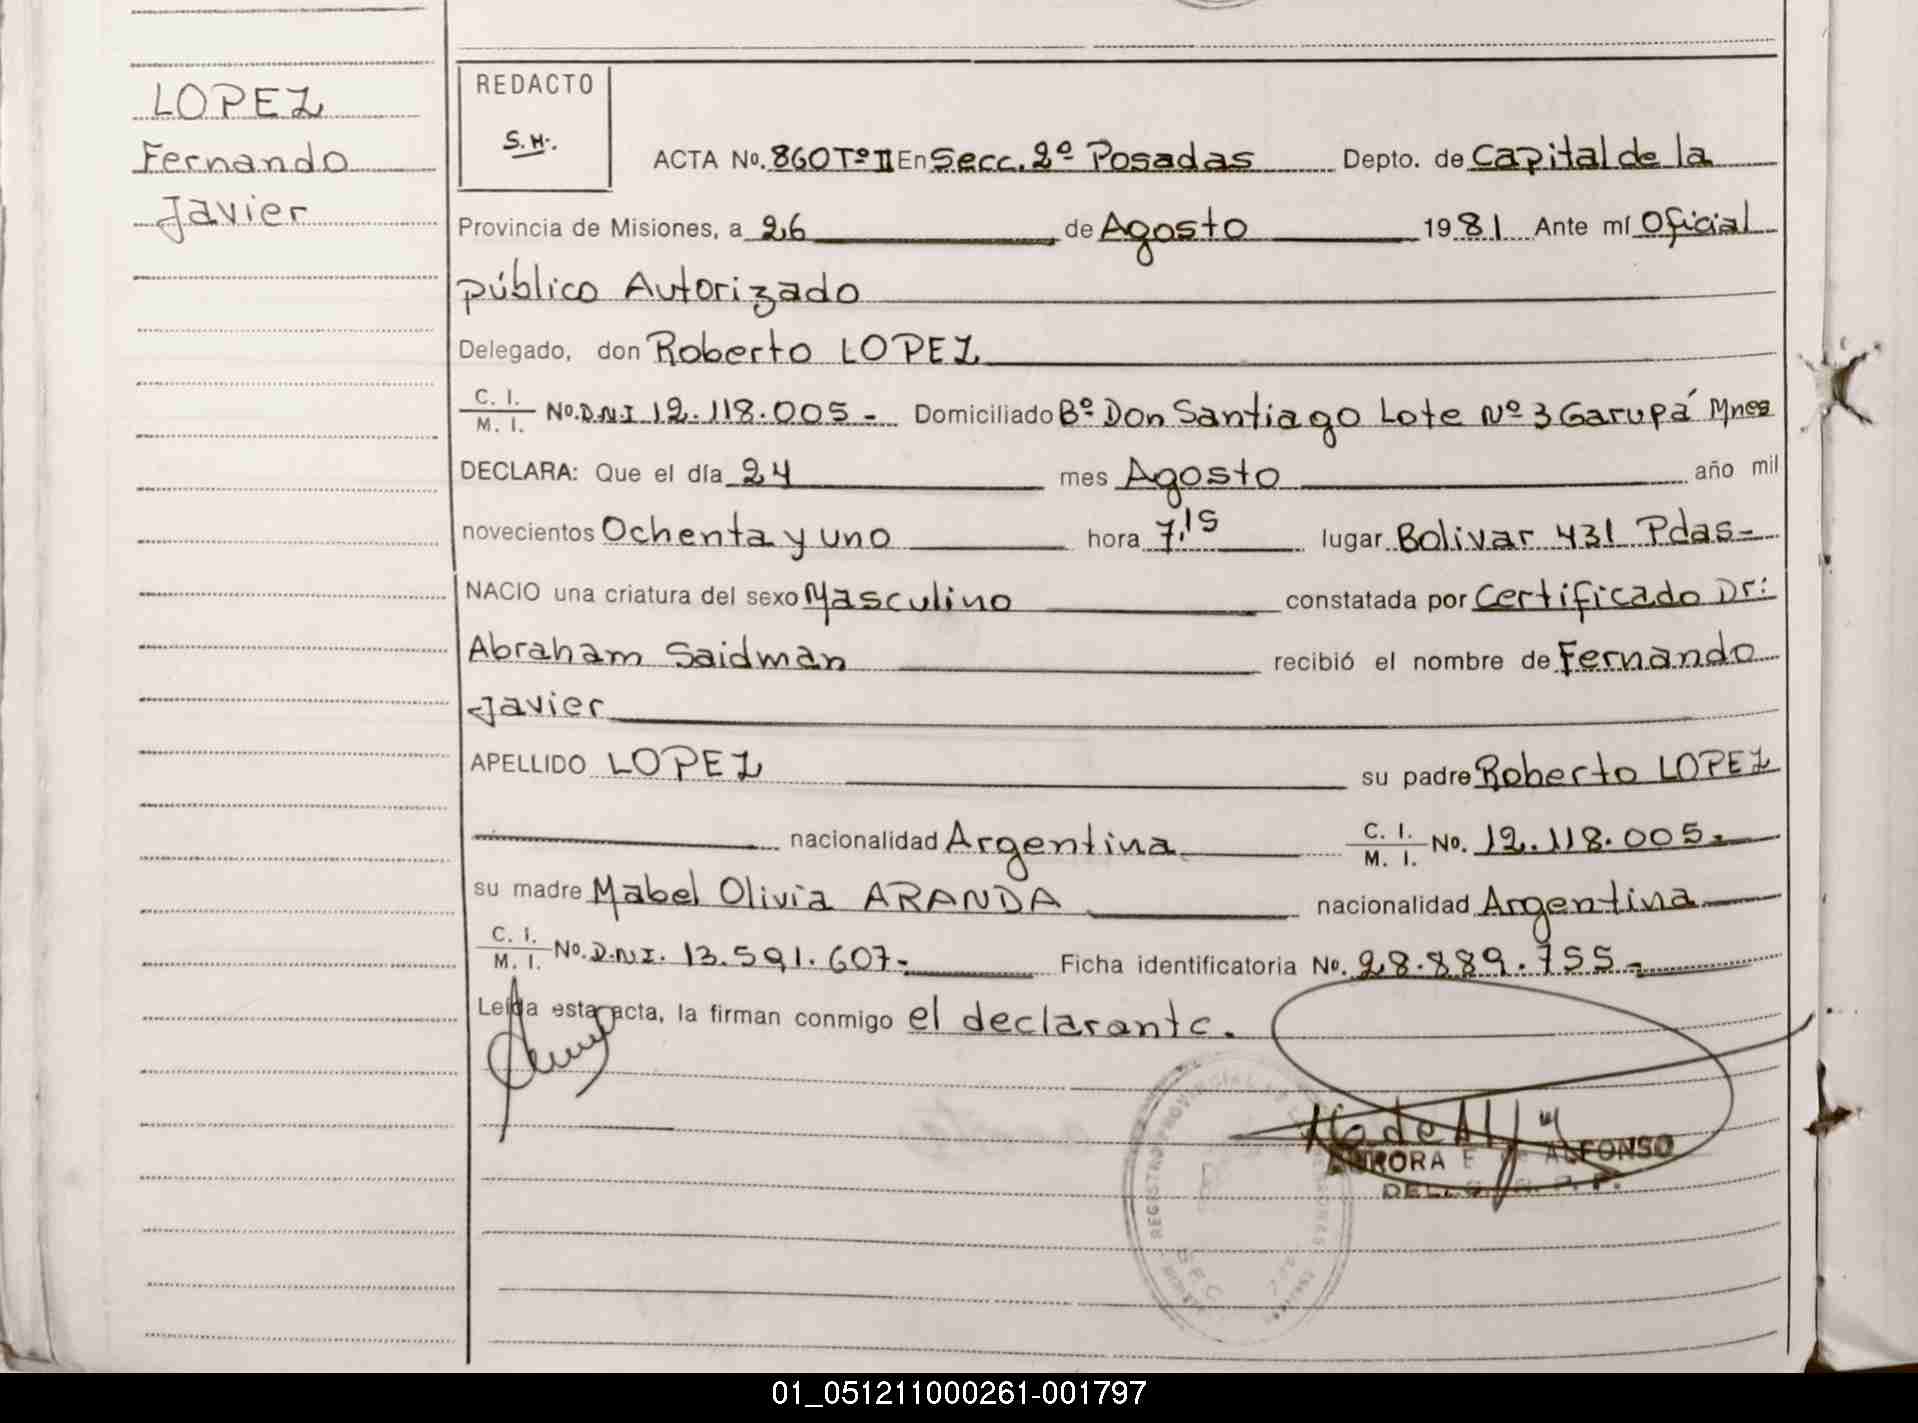 LOPEZ
Fernando
Javier
REDACTO
S.H.
ACTA No. 860 Tº II En Secc. 2º Posadas Depto. de Capital de la
Provincia de Misiones, a 26 de Agosto 1981 Ante mí Oficial
público Autorizado
Delegado, don Roberto LOPEZ
C. I.
M. I. No. D.N.I 12.118.005- Domiciliado Bº Don Santiago Lote Nº 3 Garupá Mnes
DECLARA: Que el día 24 mes Agosto año mil
novecientos Ochenta y uno hora 7,15 lugar Bolivar 431 Pdas-
NACIO una criatura del sexo Masculino constatada por Certificado Dr:
Abraham Saidman recibió el nombre de Fernando
Javier
APELLIDO LOPEZ su padre Roberto LOPEZ
nacionalidad Argentina C. I.
M. I. No. 12.118.005-
su madre Mabel Olivia ARANDA nacionalidad Argentina
C. I.
M. I. No. D.N.I. 13.591.607- Ficha identificatoria No. 28.889.755-
Leída esta acta, la firman conmigo el declarante.
REGISTRO PROVINCIAL
AURORA E. de ALFONSO
01_051211000261-001797